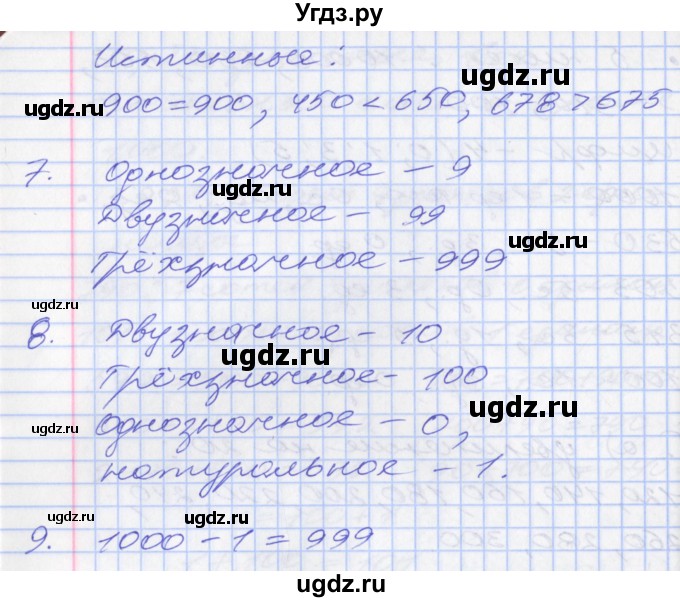 Угдз.ру
Истинные:
900 = 900, 450 < 650, 678 > 675
7. Однозначное – 9
Двузначное – 99
Трёхзначное – 999
8. Двузначное – 10
Трёхзначное – 100
Однозначное – 0,
натуральное – 1.
9. 1000 – 1 = 999
ugdz.ru
ugdz.ru
ugdz.ru
ugdz.ru
ugdz.ru
ugdz.ru
ugdz.ru
ugdz.ru
ugdz.ru
ugdz.ru
ugdz.ru
ugdz.ru